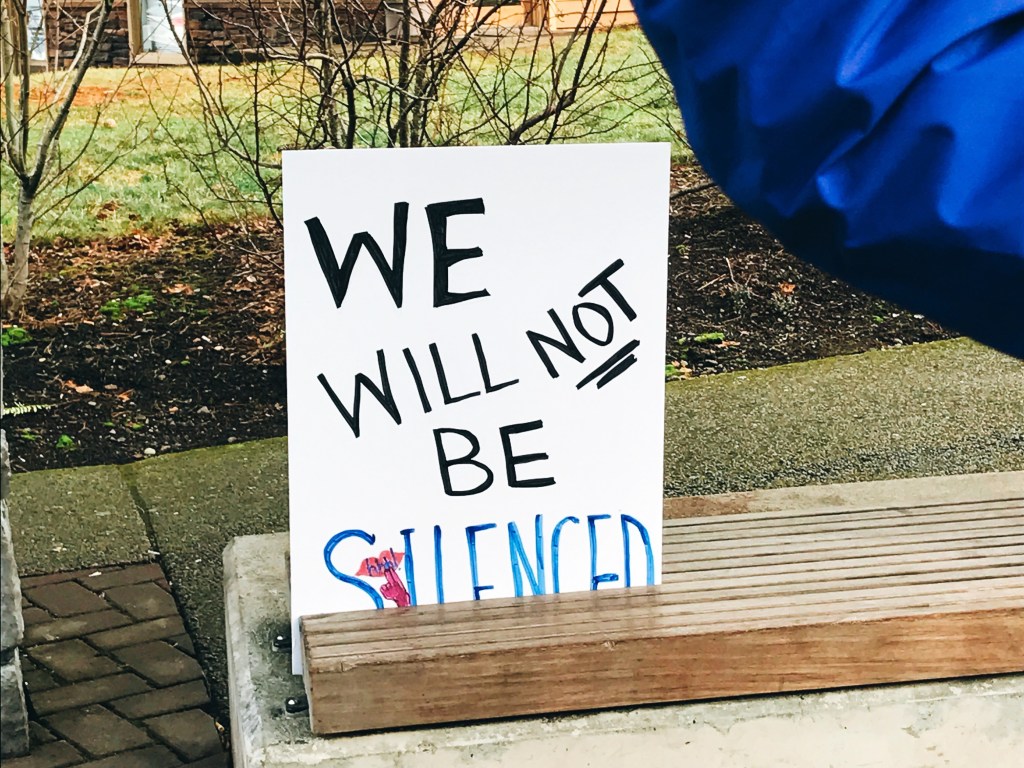 WE
WILL NOT
BE
SILENCED
hhh!